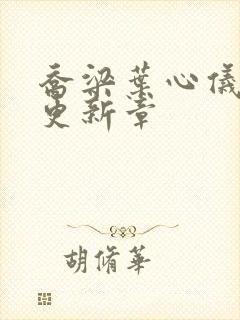 乔梁叶心仪
更新章
胡脩华